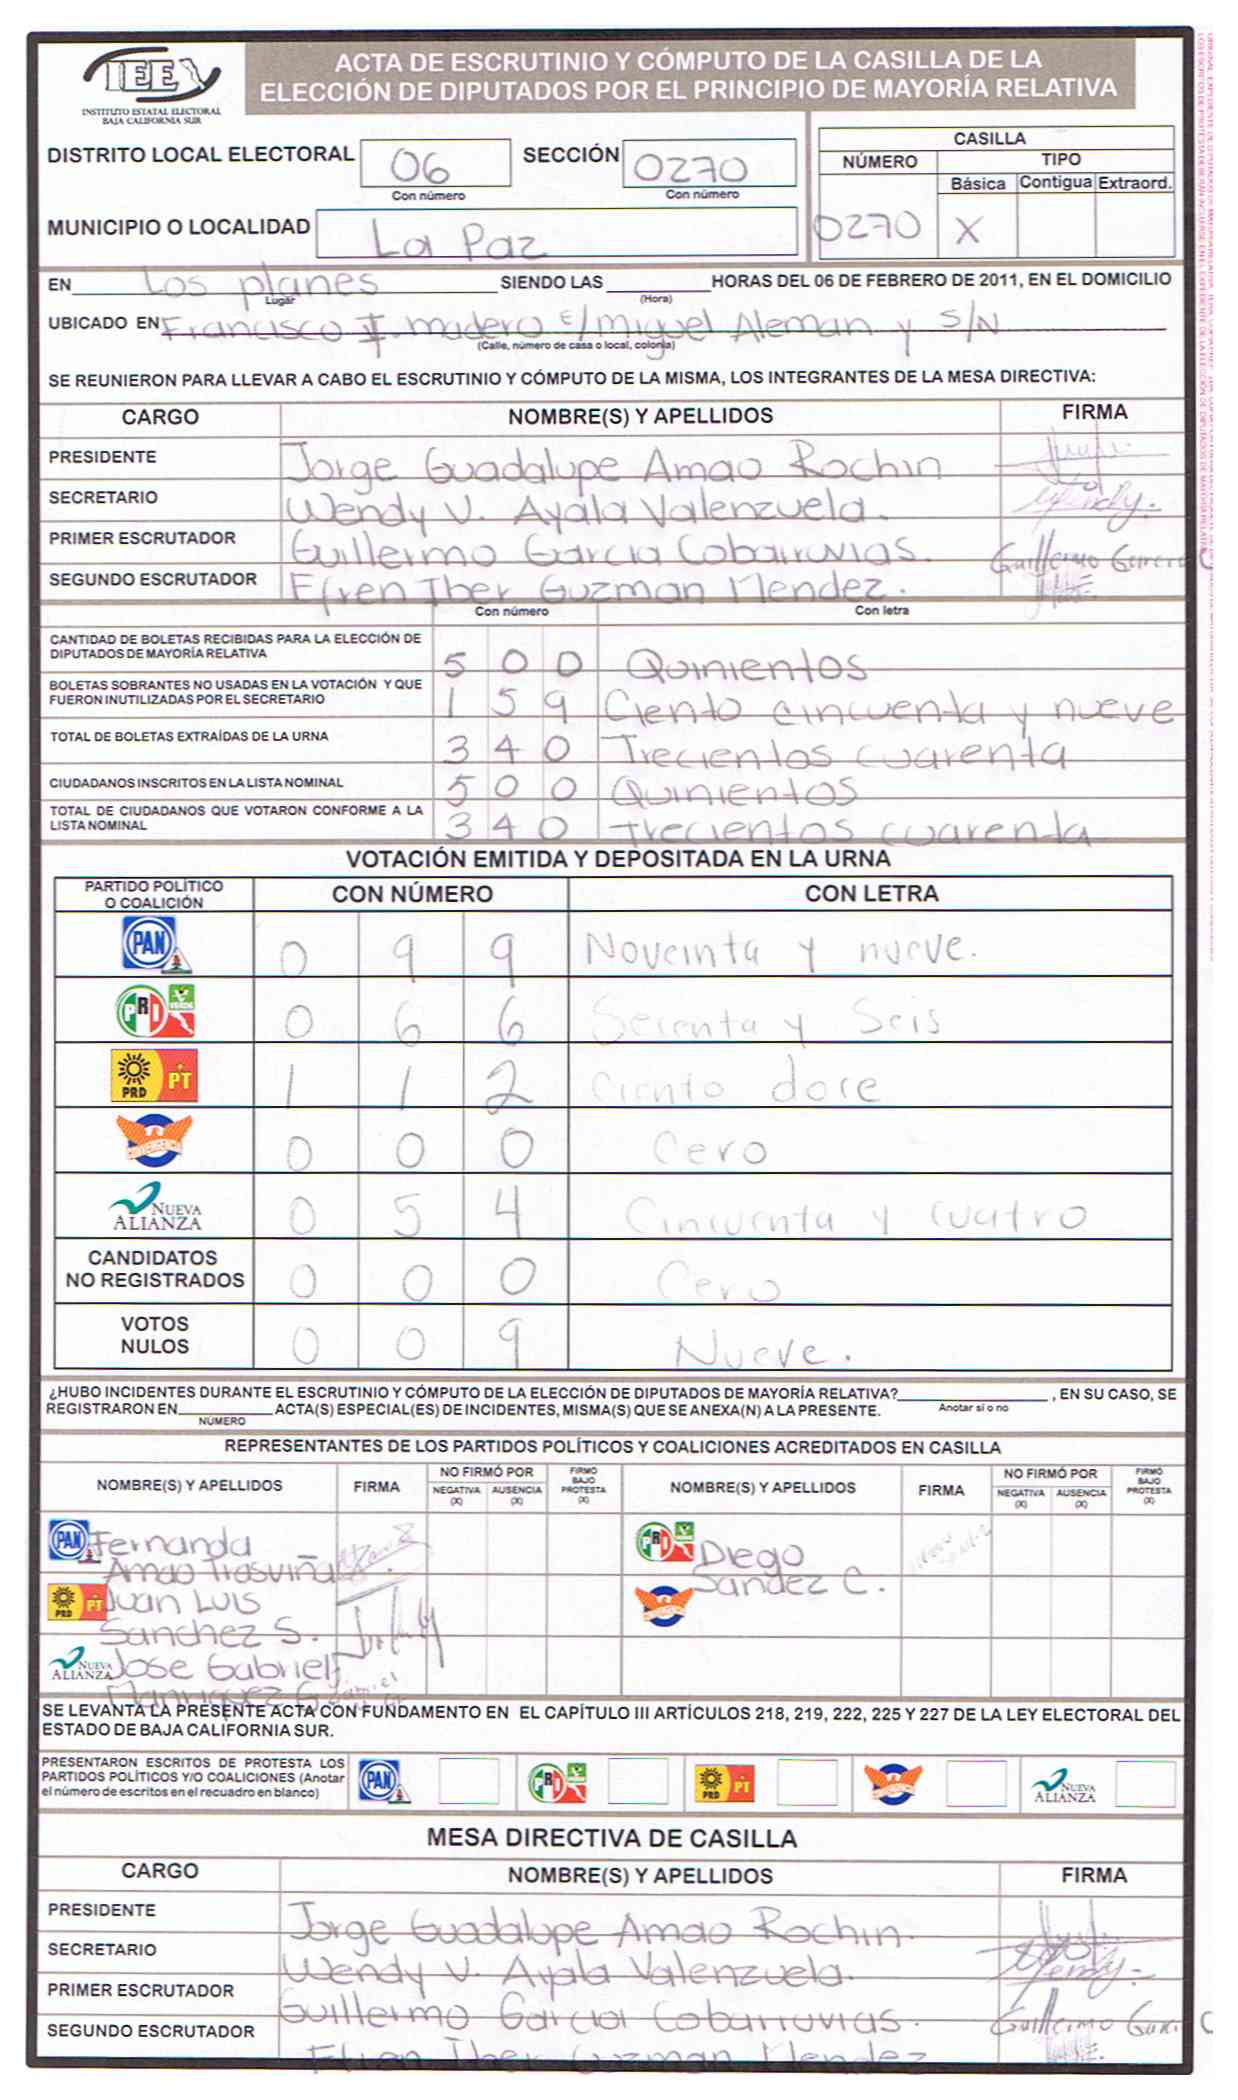 IEE
INSTITUTO ESTATAL ELECTORAL
BAJA CALIFORNIA SUR
ACTA DE ESCRUTINIO Y CÓMPUTO DE LA CASILLA DE LA
ELECCIÓN DE DIPUTADOS POR EL PRINCIPIO DE MAYORÍA RELATIVA
DISTRITO LOCAL ELECTORAL 06 SECCIÓN 0270
Con número Con número
CASILLA
NÚMERO TIPO
Básica Contigua Extraord.
0270 X
MUNICIPIO O LOCALIDAD La Paz
EN Los planes SIENDO LAS HORAS DEL 06 DE FEBRERO DE 2011, EN EL DOMICILIO
Lugar (Hora)
UBICADO EN Francisco I. madero e/ Miguel Aleman y S/N
(Calle, número de casa o local, colonia)
SE REUNIERON PARA LLEVAR A CABO EL ESCRUTINIO Y CÓMPUTO DE LA MISMA, LOS INTEGRANTES DE LA MESA DIRECTIVA:
CARGO NOMBRE(S) Y APELLIDOS FIRMA
PRESIDENTE Jorge Guadalupe Amao Rochin
SECRETARIO Wendy V. Ayala Valenzuela. Wendy.
PRIMER ESCRUTADOR Guillermo Garcia Cobarruvias. Guillermo Garcia C
SEGUNDO ESCRUTADOR Efren Iber Guzman Mendez.
Con número Con letra
CANTIDAD DE BOLETAS RECIBIDAS PARA LA ELECCIÓN DE
DIPUTADOS DE MAYORÍA RELATIVA 5 0 0 Quinientos
BOLETAS SOBRANTES NO USADAS EN LA VOTACIÓN Y QUE
FUERON INUTILIZADAS POR EL SECRETARIO 1 5 9 Ciento cincuenta y nueve
TOTAL DE BOLETAS EXTRAÍDAS DE LA URNA 3 4 0 Trecientos cuarenta
CIUDADANOS INSCRITOS EN LA LISTA NOMINAL 5 0 0 Quinientos
TOTAL DE CIUDADANOS QUE VOTARON CONFORME A LA
LISTA NOMINAL 3 4 0 Trecientos cuarenta
VOTACIÓN EMITIDA Y DEPOSITADA EN LA URNA
PARTIDO POLÍTICO
O COALICIÓN CON NÚMERO CON LETRA
PAN 0 9 9 Noveinta y nueve.
PRI VERDE 0 6 6 Secenta y Seis
PRD PT 1 1 2 Ciento doce
CONVERGENCIA 0 0 0 Cero
NUEVA
ALIANZA 0 5 4 Cincuenta y cuatro
CANDIDATOS
NO REGISTRADOS 0 0 0 Cero
VOTOS
NULOS 0 0 9 Nueve.
¿HUBO INCIDENTES DURANTE EL ESCRUTINIO Y CÓMPUTO DE LA ELECCIÓN DE DIPUTADOS DE MAYORÍA RELATIVA? , EN SU CASO, SE
REGISTRARON EN ACTA(S) ESPECIAL(ES) DE INCIDENTES, MISMA(S) QUE SE ANEXA(N) A LA PRESENTE. Anotar sí o no
NÚMERO
REPRESENTANTES DE LOS PARTIDOS POLÍTICOS Y COALICIONES ACREDITADOS EN CASILLA
NOMBRE(S) Y APELLIDOS FIRMA NO FIRMÓ POR NEGATIVA (X) AUSENCIA (X) FIRMÓ BAJO PROTESTA (X) NOMBRE(S) Y APELLIDOS FIRMA NO FIRMÓ POR NEGATIVA (X) AUSENCIA (X) FIRMÓ BAJO PROTESTA (X)
PAN Fernanda PRI Diego
Amao Trasviña Sandez C.
PRD PT Juan Luis
Sanchez S.
NUEVA
ALIANZA Jose Gabriel
Manriquez G.
SE LEVANTA LA PRESENTE ACTA CON FUNDAMENTO EN EL CAPÍTULO III ARTÍCULOS 218, 219, 222, 225 Y 227 DE LA LEY ELECTORAL DEL
ESTADO DE BAJA CALIFORNIA SUR.
PRESENTARON ESCRITOS DE PROTESTA LOS
PARTIDOS POLÍTICOS Y/O COALICIONES (Anotar
el número de escritos en el recuadro en blanco) PAN PRI PRD PT NUEVA ALIANZA
MESA DIRECTIVA DE CASILLA
CARGO NOMBRE(S) Y APELLIDOS FIRMA
PRESIDENTE Jorge Guadalupe Amao Rochin.
SECRETARIO Wendy V. Ayala Valenzuela. Wendy.
PRIMER ESCRUTADOR Guillermo Garcia Cobarruvias. Guillermo Garci C
SEGUNDO ESCRUTADOR Efren Iber Guzman Mendez